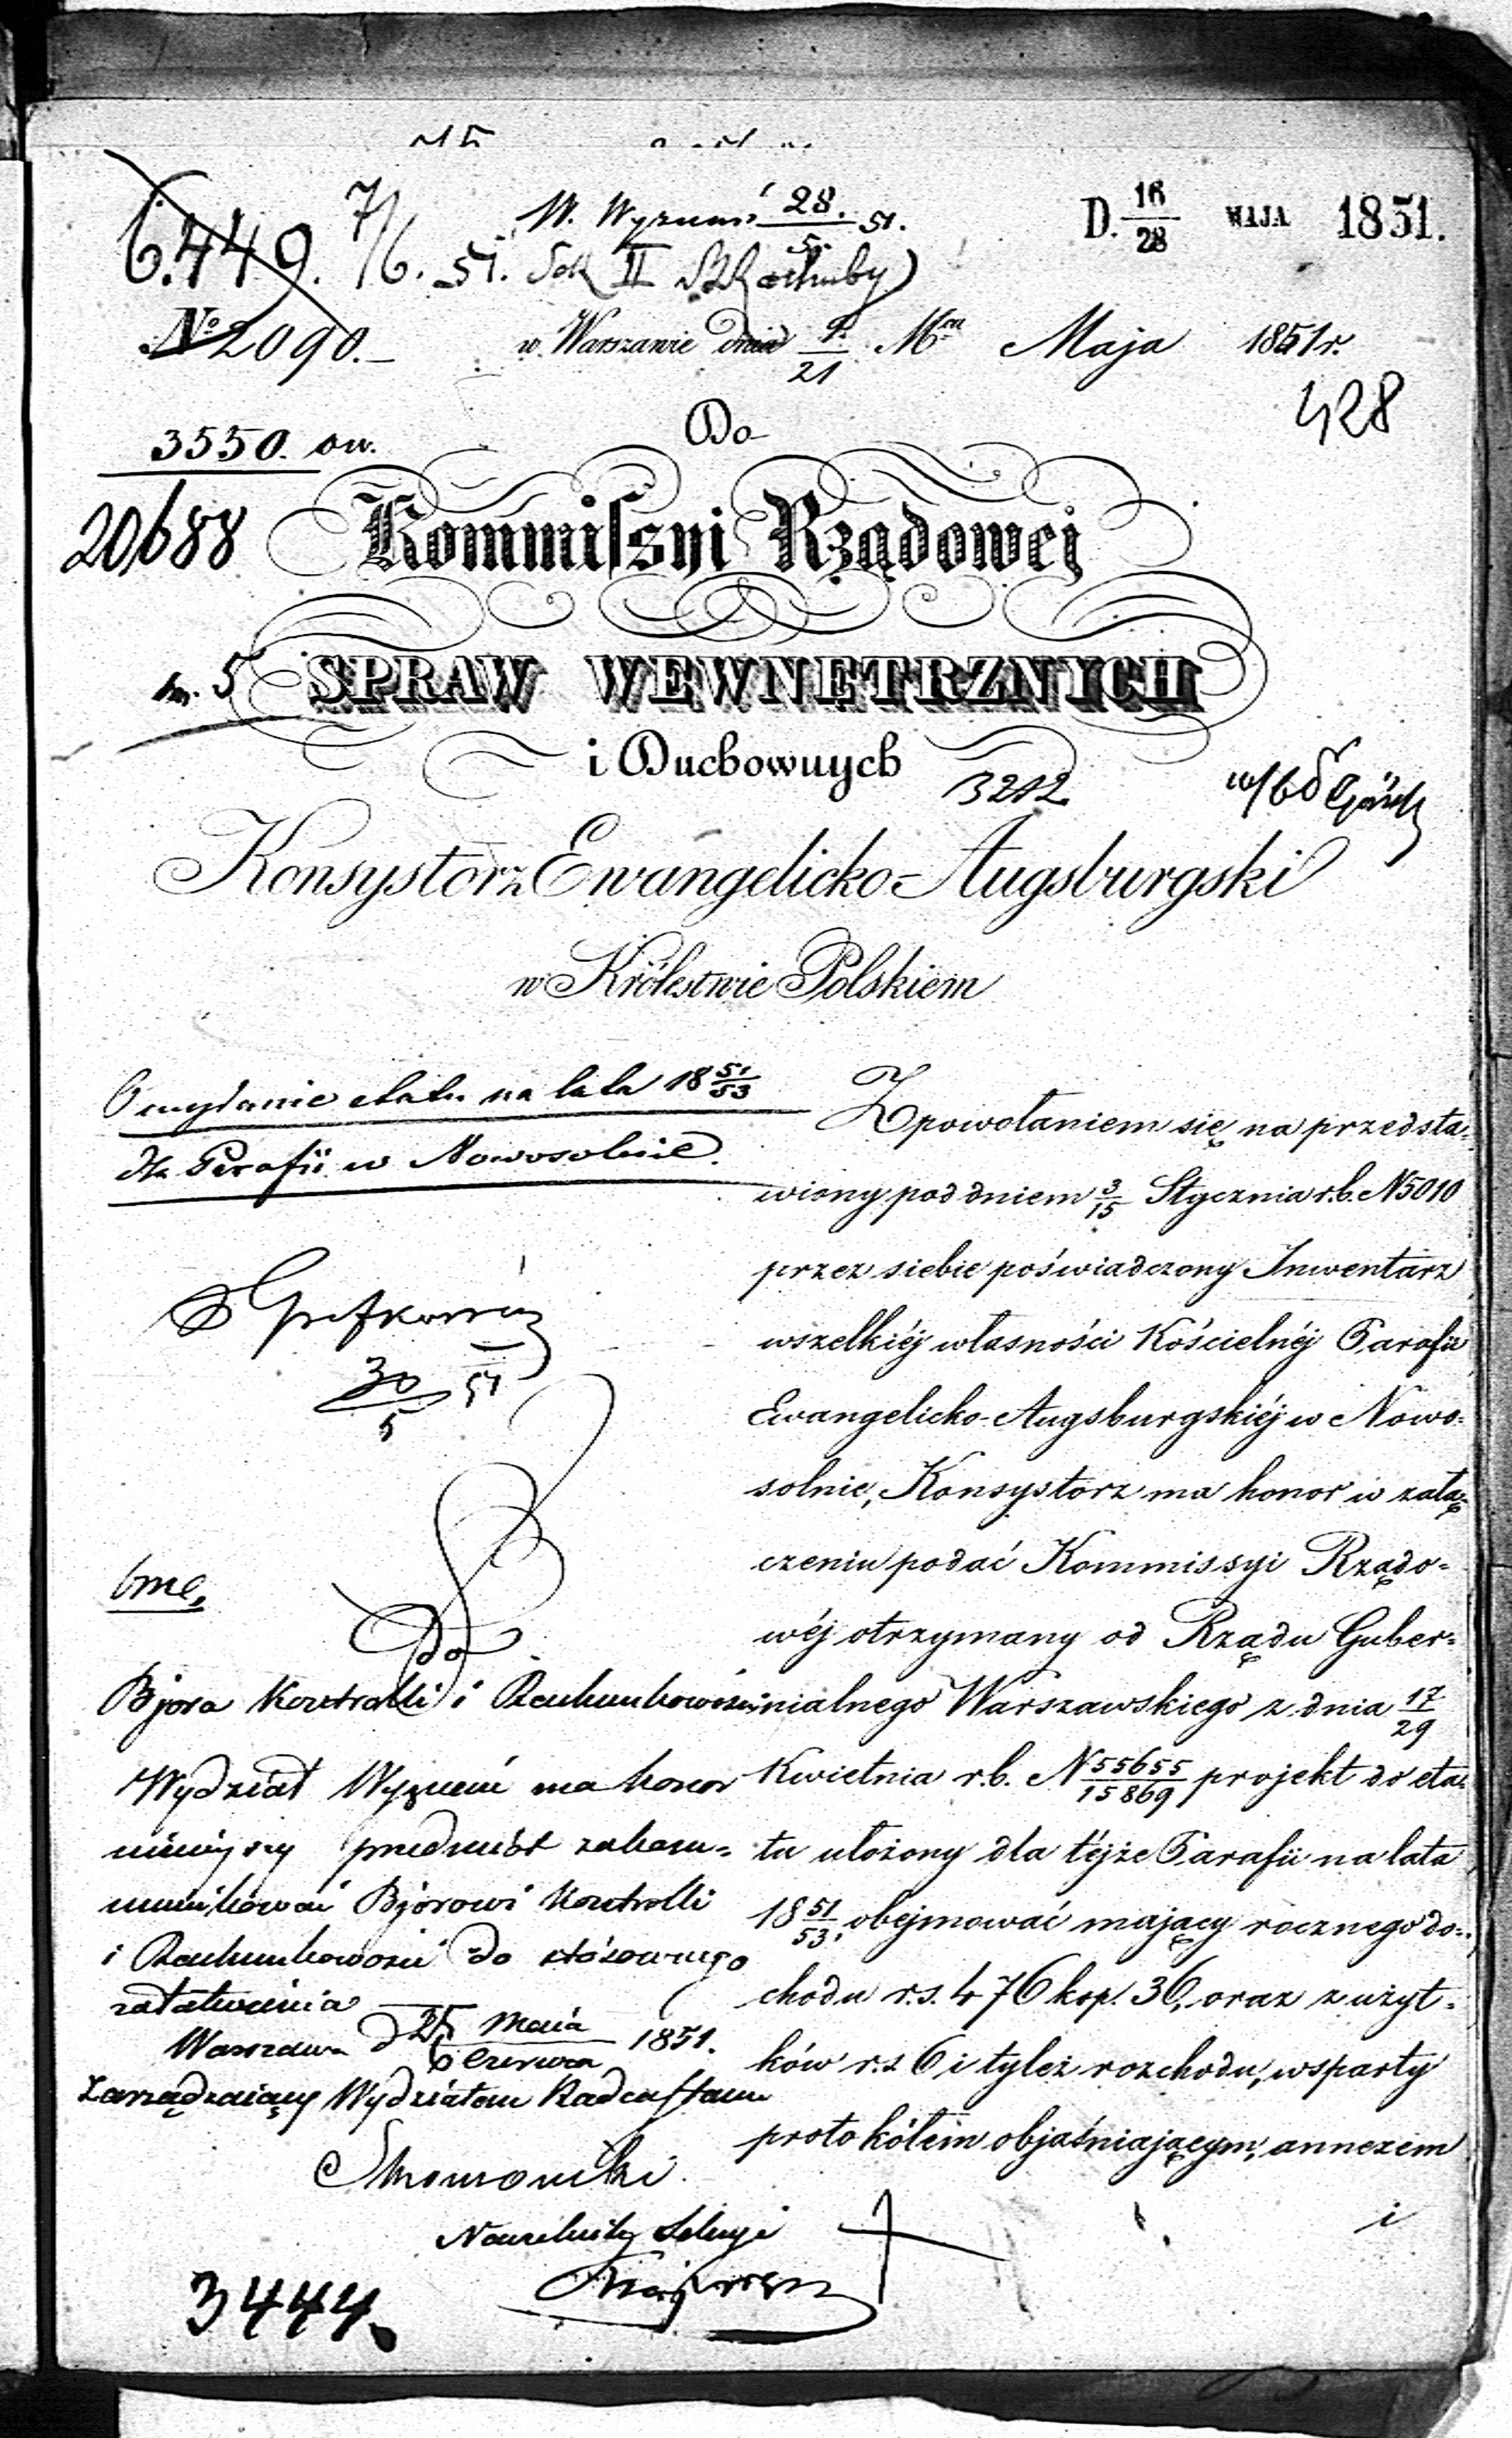 6.449. 7/6. 51.
W. Wyznań 28./5. 51.
D. 16/28 MAJA 1851.
Sek II
№ 2090.
w Warszawie dnia 9/21 Mca Maja 1851 r.
428
3550. ow.
20688
Do
Kommissyi Rządowej
5
SPRAW WEWNĘTRZNYCH
i Duchownych
3212
Konsystorz Ewangelicko-Augsburgski
w Królestwie Polskiem
O wydanie etatu na lata 18 51/53
dla Parafii w Nowosolnie.
Z powołaniem się na przedsta=
wiony pod dniem 3/15 Stycznia r.b. N 5010
przez siebie poświadczony Inwentarz
wszelkiéj własności Kościelnéj Parafii
Ewangelicko-Augsburgskiéj w Nowo=
solnie, Konsystorz ma honor w załą=
czeniu podać Kommissyi Rządo=
wéj otrzymany od Rządu Guber=
nialnego Warszawskiego z dnia 17/29
Kwietnia r.b. N 55655/15869 projekt do eta=
tu ułożony dla téjże Parafii na lata
18 51/53, obejmować mający rocznego do=
chodu r.s. 476 kop. 36, oraz z użyt=
ków r.s 6 i tyleż rozchodu, wsparty
protokółem objaśniającym, annexem
i
30/5 51
Do
Bjóra Kontrolli i Rachunkowości
Wydział Wyznań ma honor
niniejszy przedmiot zakom=
munikować Bjórowi Kontrolli
i Rachunkowości do stósownego
załatwienia
Warszawa d 25 Maia/6 Czerwca 1851.
Zarządzaiący Wydziałem Radca Stanu
Naczelnik Sekcyi
3444.